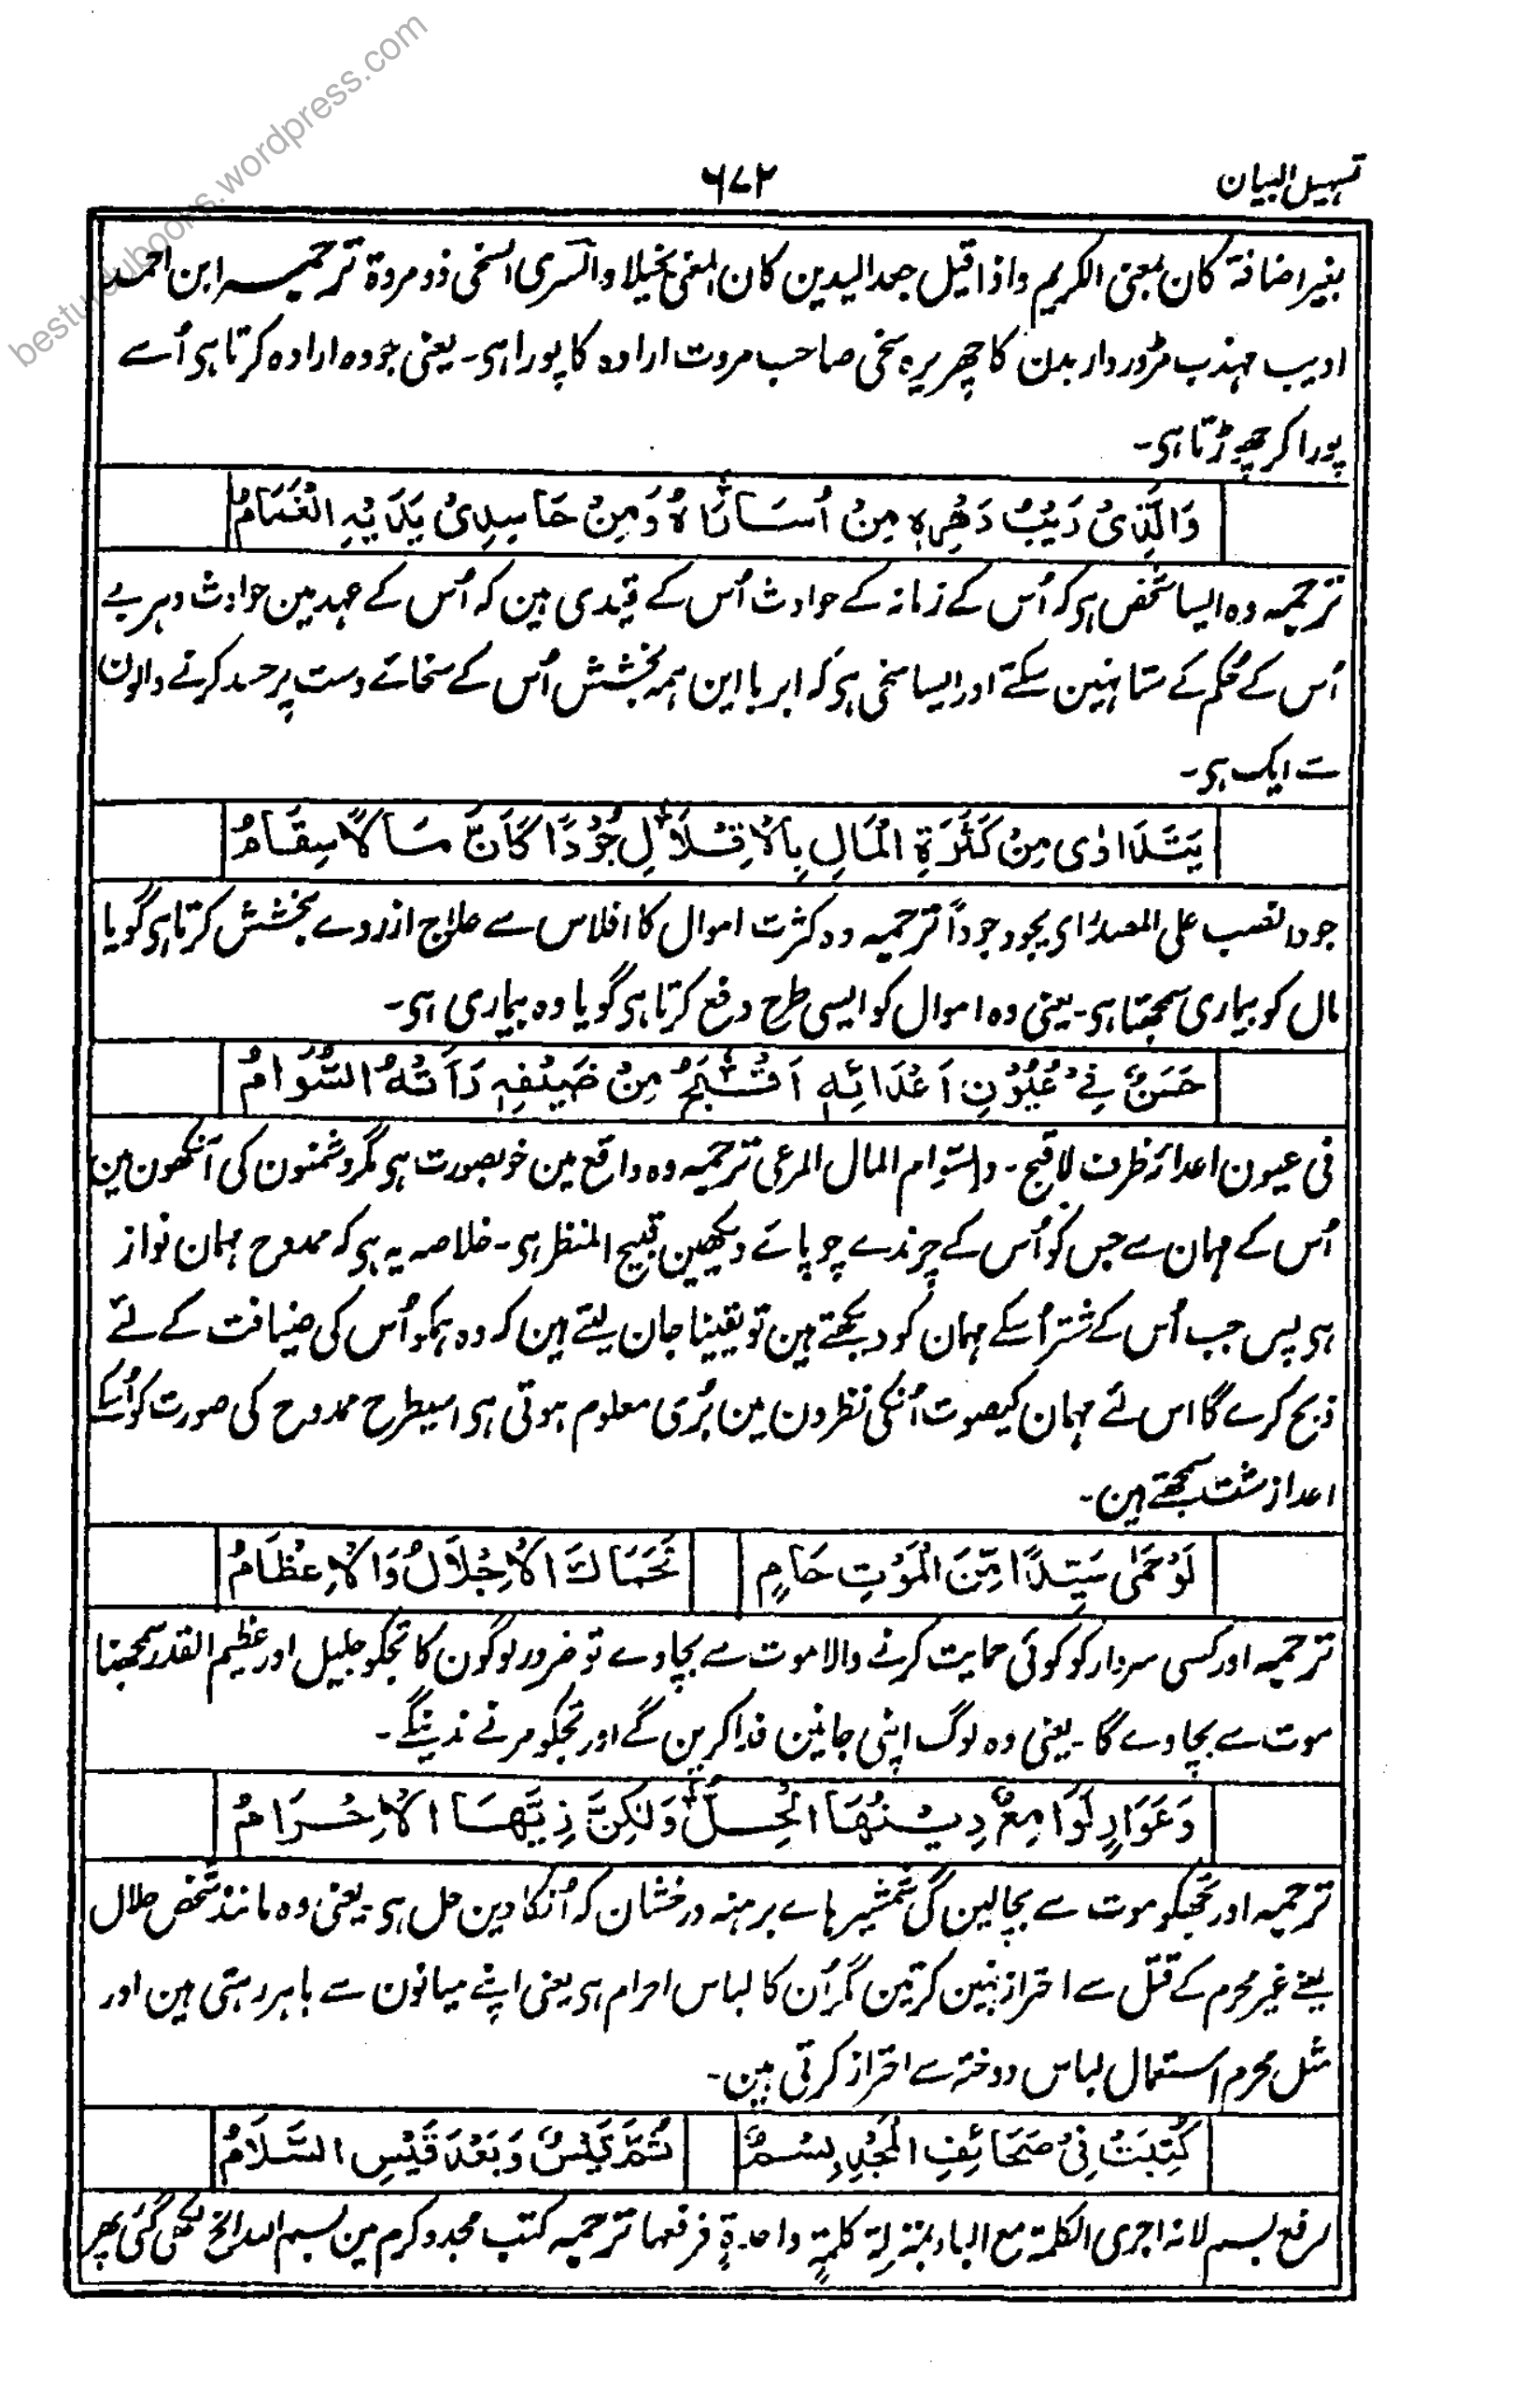 besturdubooks.wordpress.com
تسہیل البیان
۶۷۲
بغیر اضافۃ کان بمعنی الکریم واذا قیل جعد الیدین کان المعنی بخیلا والسری السخی ذو مروۃ ترجمیہ ابن احمد
ادیب مہذب مڑوردار بدن کا چھریرہ سخی صاحب مروت ارادہ کا پورا ہی۔ یعنی جو وہ ارادہ کرتا ہی اُسے
پورا کر چھوڑتا ہی۔
وَالَّذِیْ رَیْبُ دَهْرِهٖ مِنْ اُسَارَاهُ وَمِنْ حَاسِدِیْ یَدَیْهِ الْغَمَامُ
ترجمیہ وہ ایسا شخص ہی کہ اُس کے زمانہ کے حوادث اُس کے قیدی ہین کہ اُس کے عہد مین حوادث دہر بے
اُس کے حُکم کے ستا نہین سکتے اور ایسا سخی ہی کہ ابر با این ہمہ بخشش اُس کے سخائے دست پر حسد کرنے والون
سے ایک ہی۔
یَتَدَاوٰی مِنْ کَثْرَةِ الْمَالِ بِالْاِقْلَالِ جُوْدًا کَاَنَّ مَالًا سِقَامُ
جودا نصب علی المصدر ای یجود جوداً ترجمیہ وہ کثرت اموال کا افلاس سے علاج ازروے بخشش کرتا ہی گویا
مال کو بیماری سمجھتا ہی۔ یعنی وہ اموال کو ایسی طرح دفع کرتا ہی گویا وہ بیماری ہی۔
حَسَنٌ فِیْ عُیُوْنِ اَعْدَائِهٖ اَقْبَحُ مِنْ ضَیْفِهٖ رَاَتْهُ السَّوَامُ
فی عیون اعدائہ ظرف لاقبح۔ والسّوام المال المرعی ترجمیہ وہ واقع مین خوبصورت ہی مگر دشمنون کی آنکھون مین
اُس کے مہمان سے جس کو اُس کے چرندے چوپائے دیکھین قبیح المنظر ہی۔ خلاصہ یہ ہی کہ ممدوح مہمان نواز
ہی پس جب اُس کے شتر اُسکے مہمان کو دیکھتے ہین تو یقینا جان لیتے ہین کہ وہ ہمکو اُس کی ضیافت کے لئے
ذبح کرے گا اس لئے مہمان کیصوت اُنکی نظرون مین بُری معلوم ہوتی ہی اسیطرح ممدوح کی صورت کو اُسکے
اعدا زشت سمجھتے ہین۔
لَوْ حَمٰی سَیِّدًا مِّنَ الْمَوْتِ حَامٍ لَحَمَاکَ الْاِجْلَالُ وَالْاِعْظَامُ
ترجمیہ اور کسی سردار کو کوئی حمایت کرنے والا موت سے بچاوے تو ضرور لوگون کا تجکو جلیل اور عظیم القدر سمجھنا
موت سے بچاوے گا۔ یعنی وہ لوگ اپنی جانین فدا کرین گے اور تجکو مرنے ندینگے۔
وَعَوَارٍ لَوَامِعٌ دِیْنُهَا الْحِلُّ وَلٰکِنَّ زِیَّهَا الْاِحْرَامُ
ترجمیہ اور تجھکو موت سے بچالین گی شمشیر ہاے برہنہ درخشان کہ اُنکا دین حل ہی۔ یعنی وہ مانند شخص حلال
یعنے غیر محرم کے قتل سے احتراز نہین کرتین مگر اُن کا لباس احرام ہی یعنی اپنے میانون سے باہر رہتی ہین اور
مثل محرم استعمال لباس دوختہ سے احتراز کرتی ہین۔
کُتِبَتْ فِیْ صَحَائِفِ الْمَجْدِ بِسْمٌ ثُمَّ قَیْسٌ وَبَعْدَ قَیْسِ السَّلَامُ
رفع بسم لانہ اجری الکلمۃ مع الباء بمنزلۃ کلمۃٍ واحدۃٍ فرفعہا ترجمیہ کتب مجد و کرم مین بسم اللہ الخ لکھی گئی پھر